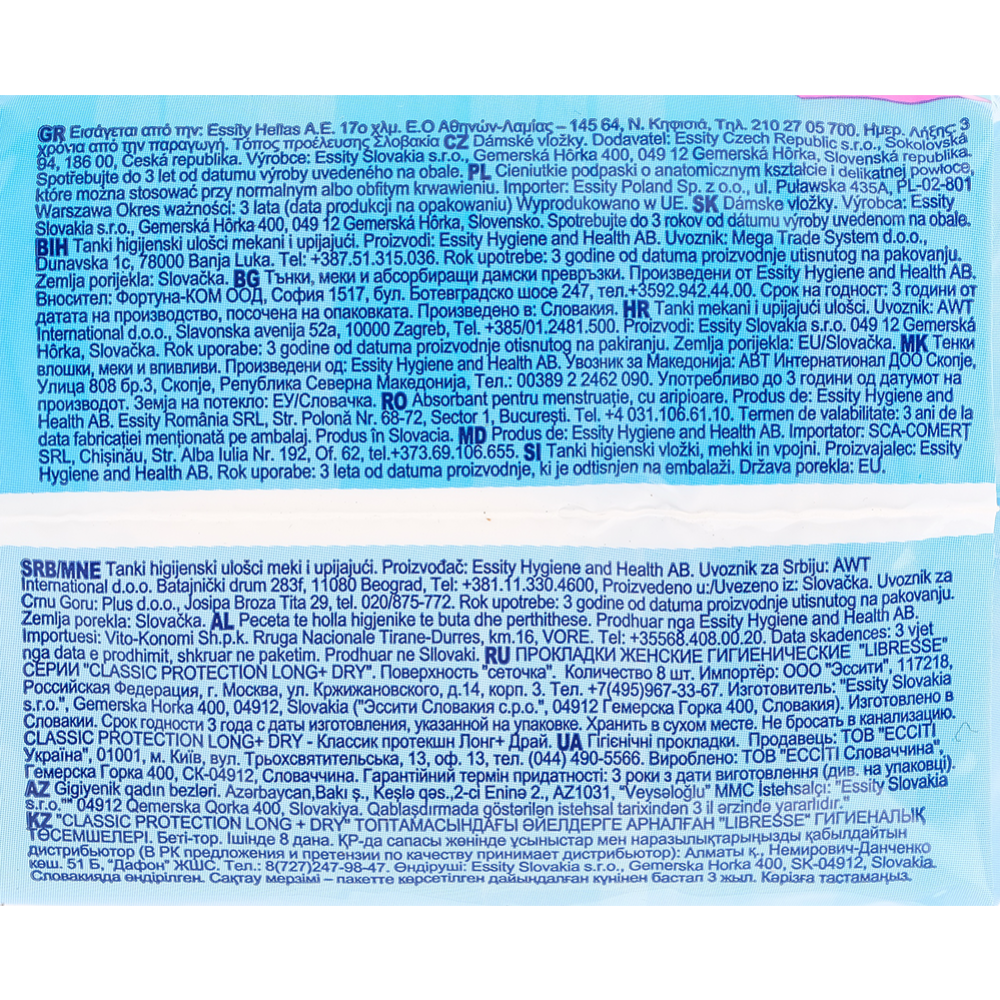 GR Εισάγεται από την: Essity Hellas A.E. 17ο χλμ. Ε.Ο Αθηνών-Λαμίας – 145 64, Ν. Κηφισιά, Τηλ. 210 27 05 700. Ημερ. Λήξης: 3
χρόνια από την παραγωγή. Τόπος προέλευσης Σλοβακία CZ Dámské vložky. Dodavatel: Essity Czech Republic s.r.o., Sokolovská
94, 186 00, Česká republika. Výrobce: Essity Slovakia s.r.o., Gemerská Hôrka 400, 049 12 Gemerská Hôrka, Slovenská republika.
Spotřebujte do 3 let od datumu výroby uvedeného na obale. PL Cieniutkie podpaski o anatomicznym kształcie i delikatnej powłoce,
które można stosować przy normalnym albo obfitym krwawieniu. Importer: Essity Poland Sp. z o.o., ul. Puławska 435A, PL-02-801
Warszawa Okres ważności: 3 lata (data produkcji na opakowaniu) Wyprodukowano w UE. SK Dámske vložky. Výrobca: Essity
Slovakia s.r.o., Gemerská Hôrka 400, 049 12 Gemerská Hôrka, Slovensko. Spotrebujte do 3 rokov od dátumu výroby uvedenom na obale.
BIH Tanki higijenski ulošci mekani i upijajući. Proizvodi: Essity Hygiene and Health AB. Uvoznik: Mega Trade System d.o.o.,
Dunavska 1c, 78000 Banja Luka. Tel: +387.51.315.036. Rok upotrebe: 3 godine od datuma proizvodnje utisnutog na pakovanju.
Zemlja porijekla: Slovačka. BG Тънки, меки и абсорбиращи дамски превръзки. Произведени от Essity Hygiene and Health AB.
Вносител: Фортуна-КОМ ООД, София 1517, бул. Ботевградско шосе 247, тел.+3592.942.44.00. Срок на годност: 3 години от
датата на производство, посочена на опаковката. Произведено в: Словакия. HR Tanki mekani i upijajući ulošci. Uvoznik: AWT
International d.o.o., Slavonska avenija 52a, 10000 Zagreb, Tel. +385/01.2481.500. Proizvodi: Essity Slovakia s.r.o. 049 12 Gemerská
Hôrka, Slovačka. Rok uporabe: 3 godine od datuma proizvodnje otisnutog na pakiranju. Zemlja porijekla: EU/Slovačka. MK Тенки
влошки, меки и впивливи. Произведени од: Essity Hygiene and Health AB. Увозник за Македонија: АВТ Интернатионал ДОО Скопје,
Улица 808 бр.3, Скопје, Република Северна Македонија, Тел.: 00389 2 2462 090. Употребливо до 3 години од датумот на
производот. Земја на потекло: ЕУ/Словачка. RO Absorbant pentru menstruație, cu aripioare. Produs de: Essity Hygiene and
Health AB. Essity România SRL, Str. Polonă Nr. 68-72, Sector 1, București. Tel. +4 031.106.61.10. Termen de valabilitate: 3 ani de la
data fabricației menționată pe ambalaj. Produs în Slovacia. MD Produs de: Essity Hygiene and Health AB. Importator: SCA-COMERȚ
SRL, Chișinău, Str. Alba Iulia Nr. 192, Of. 62, tel.+373.69.106.655. SI Tanki higienski vložki, mehki in vpojni. Proizvajalec: Essity
Hygiene and Health AB. Rok uporabe: 3 leta od datuma proizvodnje, ki je odtisnjen na embalaži. Država porekla: EU.
SRB/MNE Tanki higijenski ulošci meki i upijajući. Proizvođač: Essity Hygiene and Health AB. Uvoznik za Srbiju: AWT
International d.o.o. Batajnički drum 283f, 11080 Beograd, Tel: +381.11.330.4600, Proizvedeno u:/Uvezeno iz: Slovačka. Uvoznik za
Crnu Goru: Plus d.o.o., Josipa Broza Tita 29, tel. 020/875-772. Rok upotrebe: 3 godine od datuma proizvodnje utisnutog na pakovanju.
Zemlja porekla: Slovačka. AL Peceta te holla higjenike te buta dhe perthithese. Prodhuar nga Essity Hygiene and Health AB.
Importuesi: Vito-Konomi Sh.p.k. Rruga Nacionale Tirane-Durres, km.16, VORE. Tel: +35568.408.00.20. Data skadences: 3 vjet
nga data e prodhimit, shkruar ne paketim. Prodhuar ne Sllovaki. RU ПРОКЛАДКИ ЖЕНСКИЕ ГИГИЕНИЧЕСКИЕ "LIBRESSE"
СЕРИИ "CLASSIC PROTECTION LONG+ DRY". Поверхность "сеточка". Количество 8 шт. Импортёр: ООО "Эссити", 117218,
Российская Федерация, г. Москва, ул. Кржижановского, д.14, корп. 3. Тел. +7(495)967-33-67. Изготовитель: "Essity Slovakia
s.r.o.", Gemerska Horka 400, 04912, Slovakia ("Эссити Словакия с.р.о.", 04912 Гемерска Горка 400, Словакия). Изготовлено в
Словакии. Срок годности 3 года с даты изготовления, указанной на упаковке. Хранить в сухом месте. Не бросать в канализацию.
CLASSIC PROTECTION LONG+ DRY - Классик протекшн Лонг+ Драй. UA Гігієнічні прокладки. Продавець: ТОВ "ЕССІТІ
Україна", 01001, м. Київ, вул. Трьохсвятительська, 13, оф. 13, тел. (044) 490-5566. Вироблено: ТОВ "ЕССІТІ Словаччина",
Гемерска Горка 400, СК-04912, Словаччина. Гарантійний термін придатності: 3 роки з дати виготовлення (див. на упаковці).
AZ Gigiyenik qadın bezləri. Azərbaycan,Bakı ş., Keşlə qəs.,2-ci Eninə 2., AZ1031, "Veysəloğlu" MMC İstehsalçı: "Essity Slovakia
s.r.o."" 04912 Qemerska Qorka 400, Slovakiya. Qablaşdırmada göstərilən istehsal tarixindən 3 il ərzində yararlıdır."
KZ "CLASSIC PROTECTION LONG + DRY" ТОПТАМАСЫНДАҒЫ ӘЙЕЛДЕРГЕ АРНАЛҒАН "LIBRESSE" ГИГИЕНАЛЫҚ
ТӨСЕМШЕЛЕРІ. Беті-тор. Ішінде 8 дана. ҚР-да сапасы жөнінде ұсыныстар мен наразылықтарыңызды қабылдайтын
дистрибьютор (В РК предложения и претензии по качеству принимает дистрибьютор): Алматы қ., Немирович-Данченко
көш. 51 Б, "Дафон" ЖШС. Тел.: 8(727)247-98-47. Өндіруші: Essity Slovakia s.r.o., Gemerska Horka 400, SK-04912, Slovakia.
Словакияда өндірілген. Сақтау мерзімі – пакетте көрсетілген дайындалған күнінен бастап 3 жыл. Кәрізге тастамаңыз.